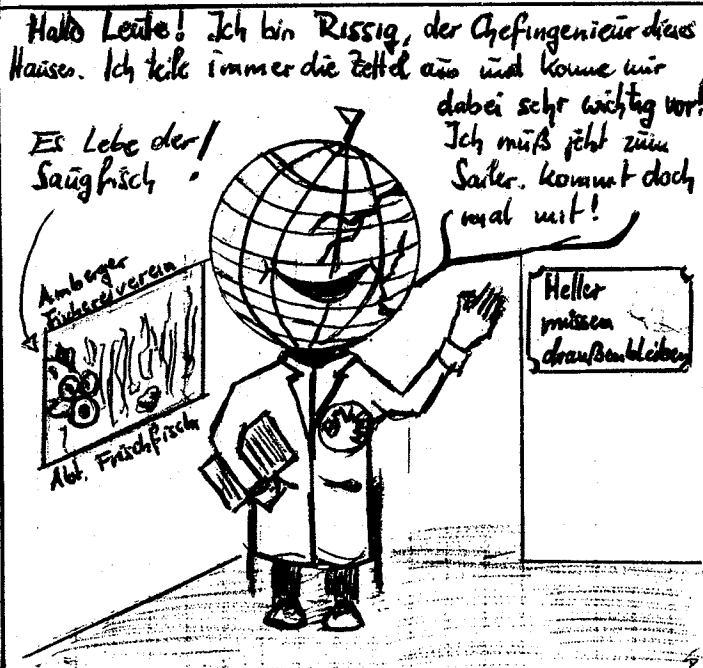 Hallo Leute! Ich bin Rissig, der Chefingenieur dieses
Hauses. Ich teile immer die Zettel aus und komme mir
dabei sehr wichtig vor!
Ich muß jetzt zum
Sailer. Kommt doch
mal mit!
Es Lebe der
Saugfisch!
Amberger
Fischereiverein
Abt. Frischfisch
Heller
müssen
draußenbleiben